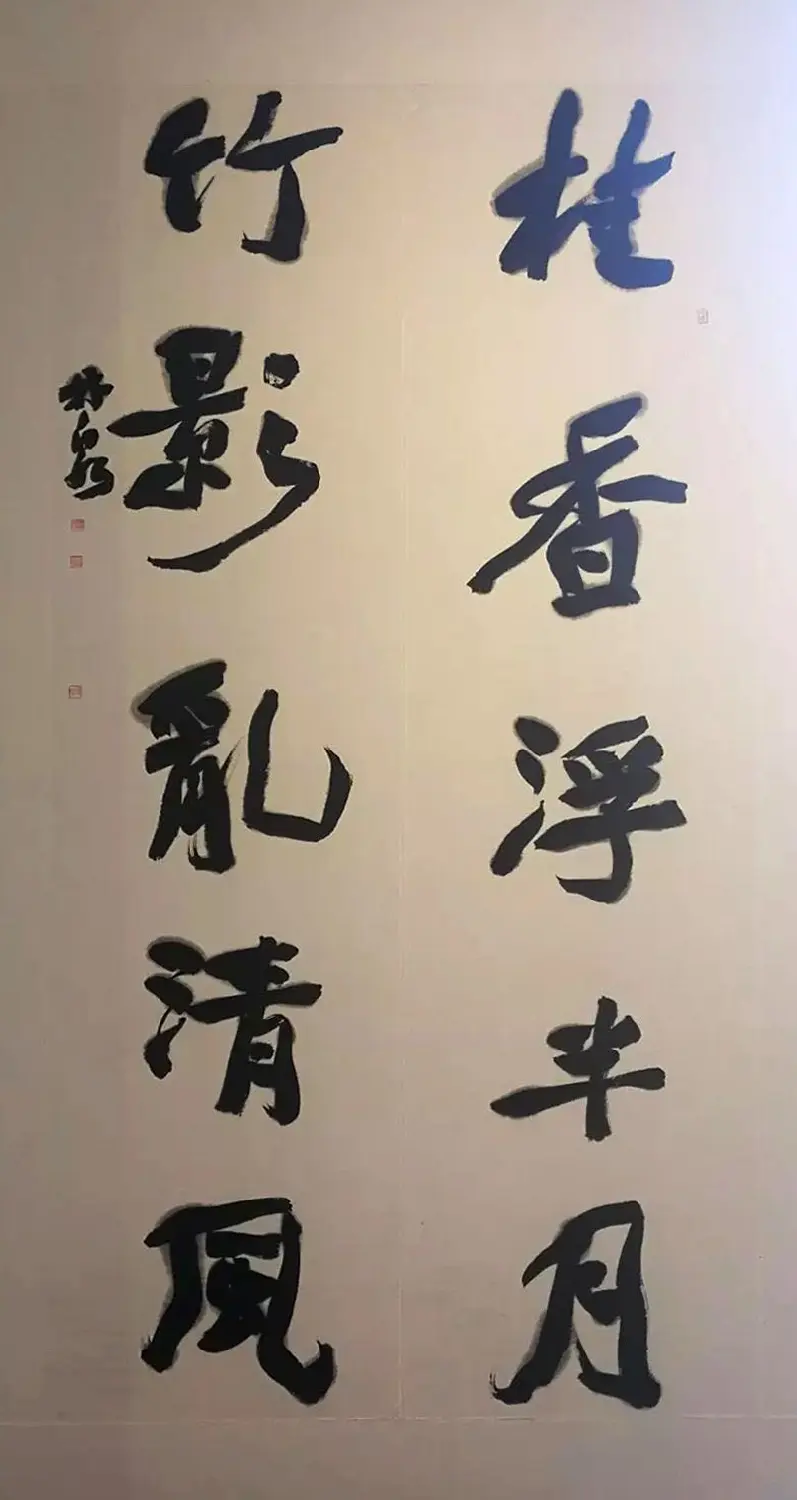 桂香浮半月
竹影亂清風
林泉